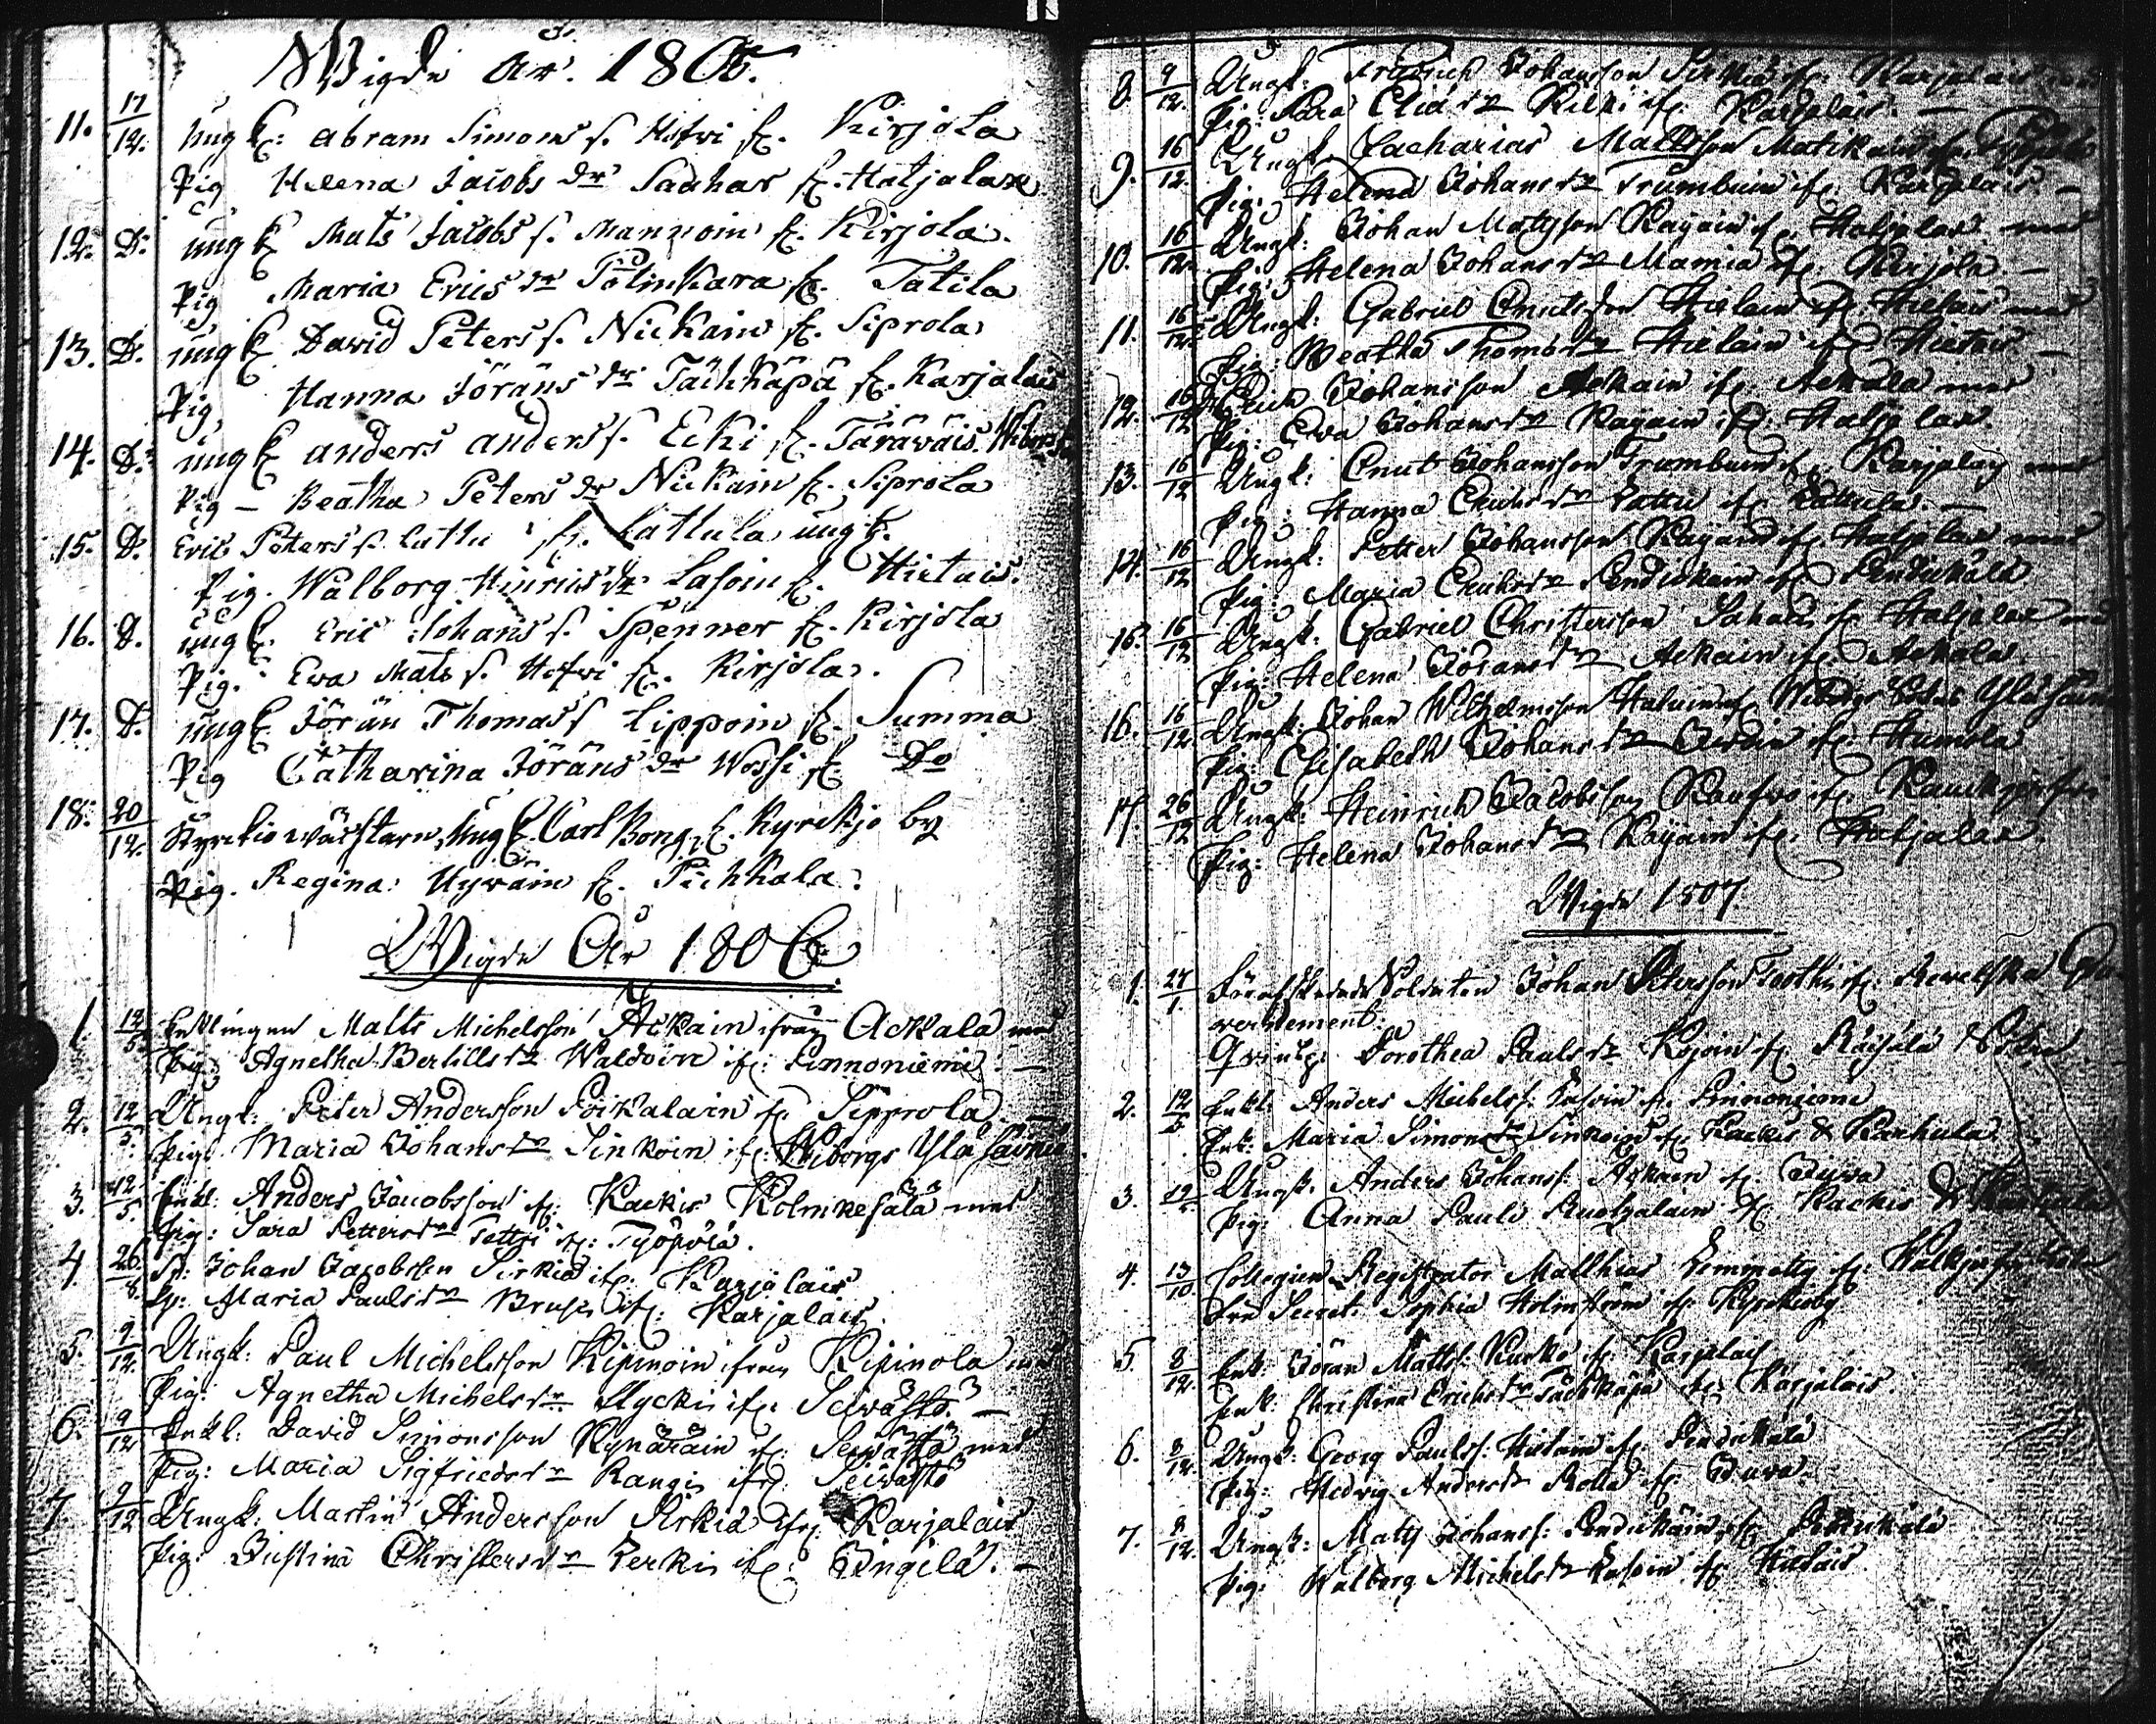 Wigde År 1805.
11. 17/12. ungk: Abram Simons s. Hofvi fr. Kirjola
Pig Helena Jacobs dr Saahar fr. Hatjalax
12. D: ungk Mats Jacobs s. Mannoin fr. Kirjola.
Pig Maria Erics dr Polinkara fr. Tatila
13. D. ungk David Peters s. Nickain fr. Siprola
Pig Hanna Jöräns dr Tächkäpä fr. Karjalais
14. D. ungk Anders Anders s. Ecki fr. Taräwäis.
Pig – Beatha Peters dr Nickain fr. Siprola
15. D. Eric Peters s. Lattu fr. Kattula ungk.
Pig. Walborg Hinrics dr Lasoin fr. Hietais.
16. D. ungk. Eric Johans s. Spenner fr. Kirjola
Pig. Eva Mats s. Hofvi fr. Kirjola.
17. D. ungk Jörän Thomas s Lippoin fr. Summa
Pig Catharina Jöräns dr Wossi fr Do
18. 20/12. Kyrckio wächtarn, Ungk. Carl Bong, fr. Kyrckjo by
Pig. Regina Hyväin fr. Pichkala.
Wigde År 1806
1. 12/5 Enklingen Matts Michelsson Ackain ifrån Ackala med
Pig. Agnetha Bertills dr Waldoin ifr: Pinnoniemi. –
2. 12/5. Ungk: Peter Andersson Poikalain fr Sipprola –
Pig: Maria Johans dr Sinkoin ifr: Wiborgs Ylä
3. 12/5. Enkl: Anders Jacobsson fr: Kackis Kolmikesälä med
Pig: Sara Petters dr Tettri ifr: Työpölä.
4. 26/8. S: Johan Jacobsson Sirkiä ifr: Karjalais
P: Maria Pauls dr ifr: Karjalais.
5. 9/12. Ungk: Paul Michelsson Kipinoin ifrån Kipinola med
Pig: Agnetha Michels dr Myckis ifr: Seivästö. –
6. 9/12 Enkl: David Simonsson Kynäräin ifr: Seivästö med
Pig: Maria Sigfrieds dr Rangi ifr: Seivästö
7. 9/12 Ungk: Martin Andersson Sirkiä ifr: Karjalais
Pig: Justina Christers dr Perki ifr: Ingilä. –
8. 9/12. Ungk: Fredrich Johansson Sirkiä ifr: Karjalais
Pig: Sara Elia dr Kilki ifr: Karjalais. –
9. 16/12. Ungk: Zacharias Mattsson Matikain ifr:
Pig: Helena Johans dr Trumbuin ifr: Karjalais –
10. 16/12. Ungk: Johan Mattsson Kayain ifr: Hatjalax med
Pig: Helena Johans dr Mamia ifr: Kirjola –
11. 16/12. Ungk: Gabriel Cnutsson Hietain ifr: Hietais med
Pig: Beatha Thomas dr Hietain ifr: Hietais –
12. 16/12 Erich Johansson Ackain ifr: Ackala med
Pig: Eva Johans dr Kayain ifr: Hatjalax.
13. 16/12 Ungk: Cnut Johansson Trumbuin ifr: Karjalais med
Pig: Hanna Erichs dr Lattu ifr: Kattula. –
14. 16/12 Ungk: Petter Johansson Kayain ifr: Hatjalax med
Pig: Maria Erichs dr Pendickain ifr: Pendickala
15. 16/12 Ungk: Gabriel Christersson Sahar ifr: Hatjalax med
Pig: Helena Jörans dr Ackain ifr: Ackala.
16. 16/12 Ungk: Johan Wilhelmsson ifr: Wiborgs Sokn Ylä
Pig: Elisabeth Johans dr ifr: Humola
17. 26/12 Ungk: Heinrich Jacobsson ifr:
Pig: Helena Johans dr Kayain ifr: Hatjalax.
Wigde 1807.
1. 27/1. Förafskedade Soldaten Johan Petersson ifr: Revelska
vernement:
Qvinsp: Dorothea Pauls dr Kojoin ifr Räisälä Sokn
2. 12/5 Enkl: Anders Michelss: Lasoin fr. Pinnoniemi
Enk: Maria Simons dr Sinkoin ifr. Kackis & Karkula
3. 12/5. Ungk: Anders Johanss: Ackain fr. Juwa
Pig: Anna Pauls ifr: Kackis &
4. 13/10. Collegien Registrator Matthias ifr:
Secret: Sophia Holmström ifr: Kyrckoby
5. 8/12. Enk: Jöran Matts: Kurki ifr: Karjalais
Enk: Christina Erichs dr Tächkäpä ifr: Karjalais.
6. 8/12. Ungk: Georg Paulss: Hietain ifr: Pendickälä
Pig: Hedvig Anders dr Rolla ifr: Juwa.
7. 8/12. Ungk: Mats Johanss: Pendickäin ifr: Pendickälä
Pig: Walborg Michels dr Lasoin ifr Hietais